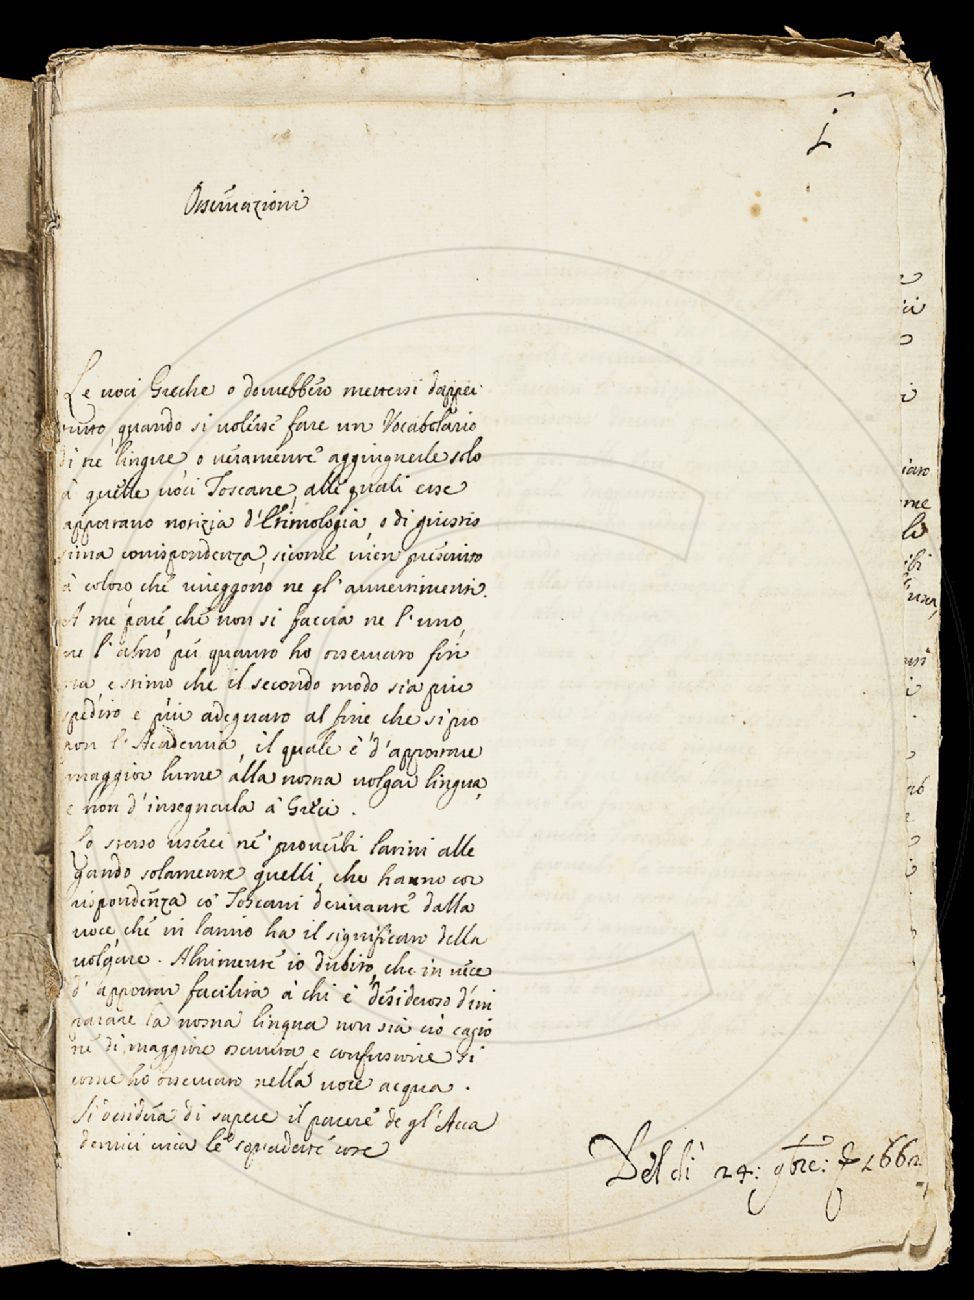 Osseruazioni
Le uoci Greche o dourebbero mettersi dapper
tutto, quando si uolesse fare un Vocabolario
di tre lingue, o ueramente aggiugnerle solo
à quelle uoci Toscane, alle quali esse
apportano notizia d'Etimologia, o di giustis
sima corrispondenza, sicome uien prescritto
à coloro che riueggono ne gl'auuertimenti.
A me pare, che non si faccia ne l'uno,
ne l'altro per quanto ho osseruato fin
ora, e stimo che il secondo modo sia piu
spedito e piu adeguato al fine che si pro
pon l'Accademia, il quale è d'apportare
maggior lume alla nostra uolgar lingua,
e non d'insegnarla à Greci.
Lo stesso userei ne prouerbi latini alle
gando solamente quelli, che hanno cor
rispondenza co' Toscani deriuante dalla
uoce, che in latino ha il significato della
uolgare. Altrimente io dubito, che in uece
d'apportar facilità à chi è desideroso d'im
parare la nostra lingua non sia ciò cagio
ne di maggiore oscurità, e confusione si
come ho osseruato nella uoce acqua.
Si desidera di sapere il parere de gl'Acca
demici circa le seguenti cose
Del dì 24: 9bre: 1662